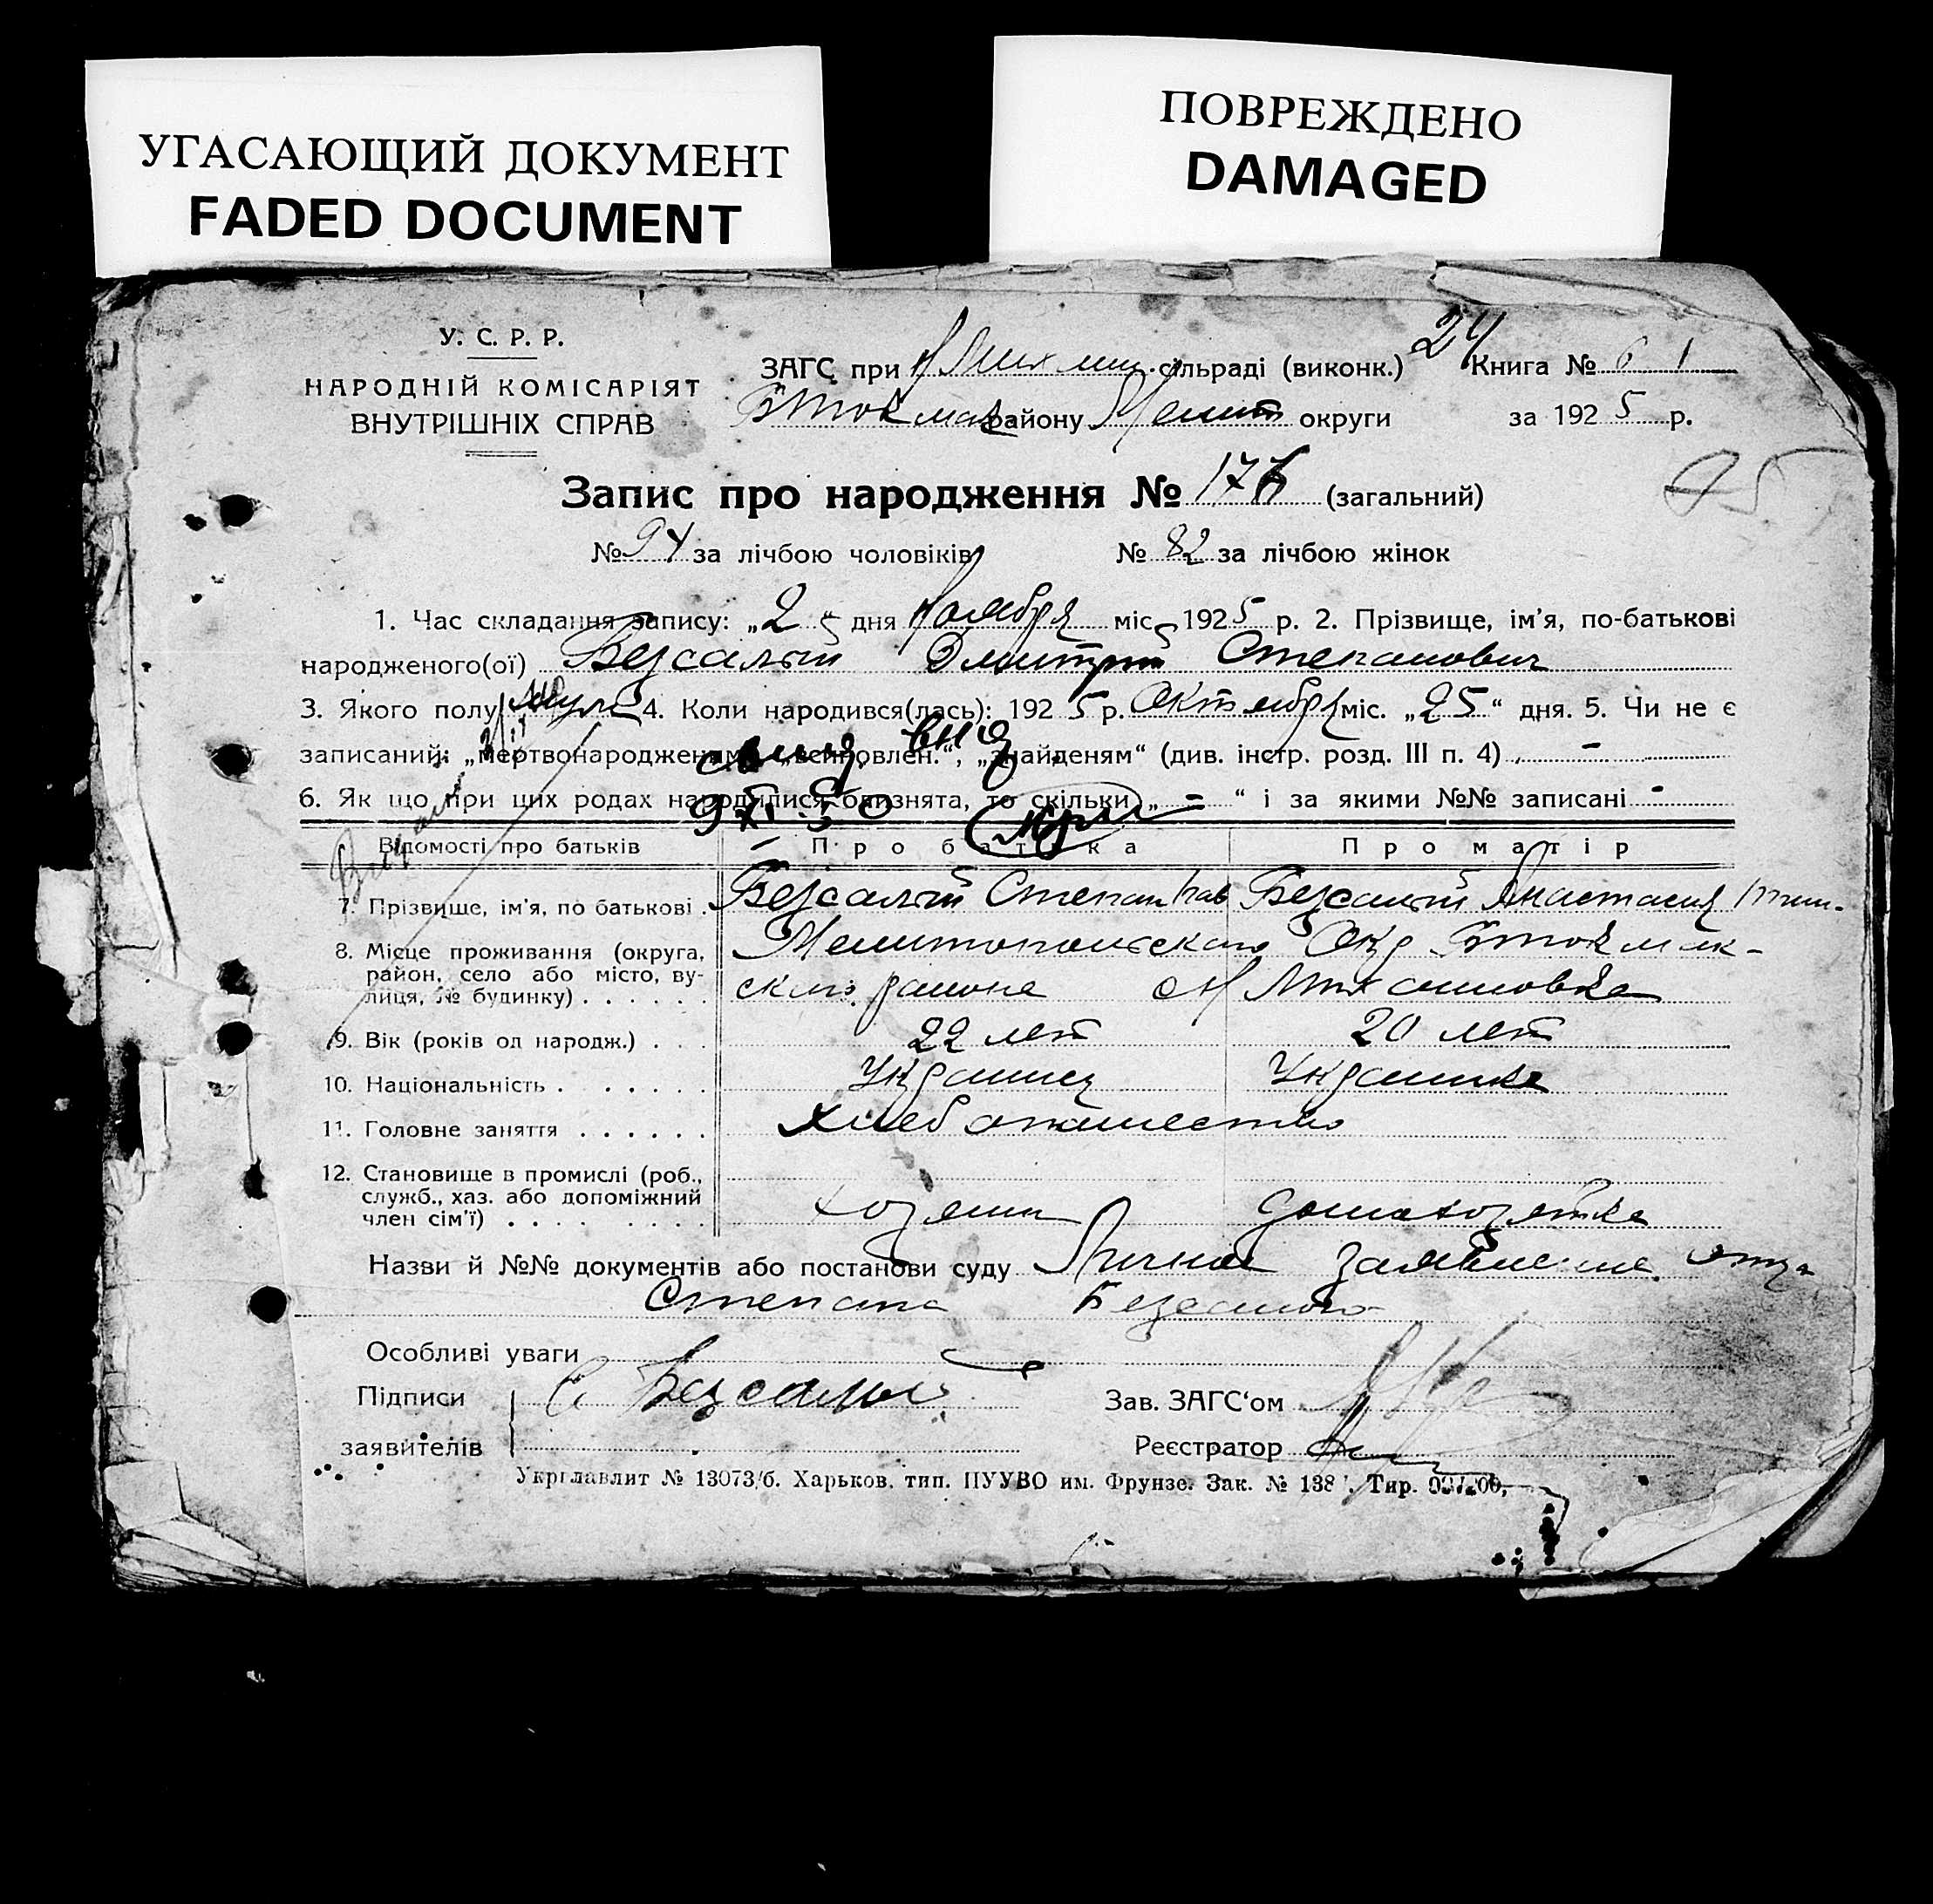 УГАСАЮЩИЙ ДОКУМЕНТ
FADED DOCUMENT
ПОВРЕЖДЕНО
DAMAGED
У. С. Р. Р.
НАРОДНІЙ КОМІСАРІЯТ
ВНУТРІШНІХ СПРАВ
24
ЗАГС при сільраді (виконк.) Книга №
Б Токмак району Мелит округи за 1925 р.
Запис про народження № 176 (загальний)
№ 94 за лічбою чоловіків № 82 за лічбою жінок
1. Час складання запису: „2“ дня Ноября міс. 1925 р. 2. Прізвище, ім'я, по-батькові
народженого(ої) Безсалый Дмитрий Степанович
3. Якого полу Муж 4. Коли народився(лась): 1925 р. Октября міс. „25“ дня. 5. Чи не є
записаний: „мертвонародженим“, „всиновлен.“, „знайденям“ (див. інстр. розд. III п. 4) -
6. Як що при цих родах народилися близнята, то скільки „-“ і за якими №№ записані -
Відомості про батьків Про батька Про матір
7. Прізвище, ім'я, по батькові . Безсалый Степан Пав Безсалый Анастасия Тим.
8. Місце проживання (округа, район, село або місто, вулиця, № будинку) . . . . . . Мелитопольского Окр Б Токмак-
ского района с Н Михайловка
9. Вік (років од народж.) . . . 22 лет 20 лет
10. Національність . . . . . . Украинец Украинка
11. Головне заняття . . . . . . хлебопашество
12. Становище в промислі (роб.,
служб., хаз. або допоміжний
член сім'ї) . . . . . . . . . хозяин домахозяйка
Назви й №№ документів або постанови суду Личное заявление отца
Степана Безсалого
Особливі уваги
Підписи С Безсалый Зав. ЗАГС'ом
заявителів Реєстратор
Укрглавлит № 13073/б. Харьков. тип. ПУУВО им. Фрунзе. Зак. № 138 Тир.